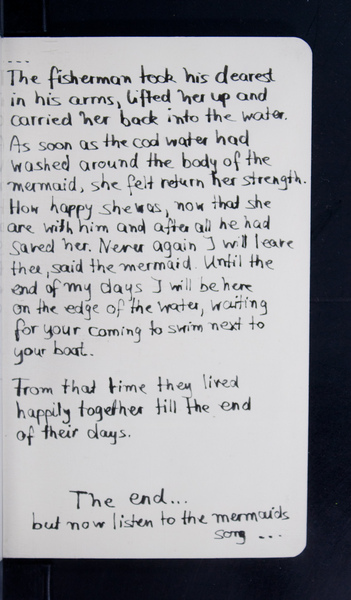 ...
The fisherman took his dearest
in his arms, lifted her up and
carried her back into the water.
As soon as the cod water had
washed around the body of the
mermaid, she felt return her strength.
How happy she was, now that she
are with him and after all he had
saved her. Never again I will leave
thee, said the mermaid. Until the
end of my days I will be here
on the edge of the water, waiting
for your coming to swim next to
your boat.
From that time they lived
happily together till the end
of their days.
The end...
but now listen to the mermaids
song ...